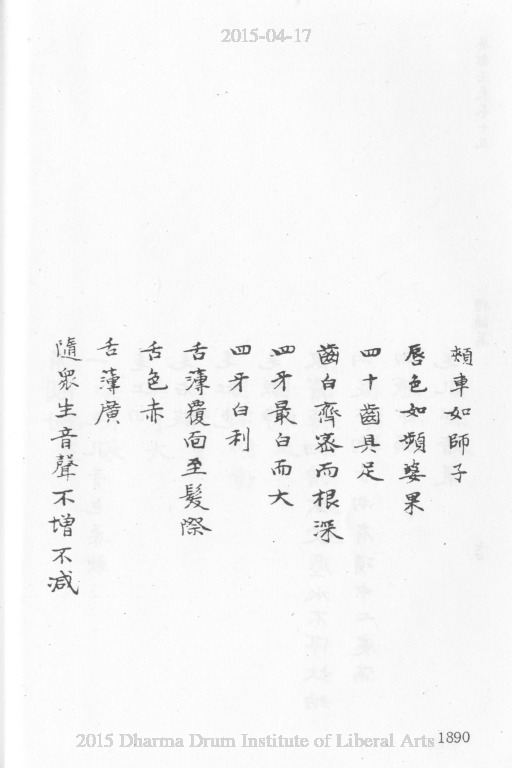 2015-04-17
頰車如師子
唇色如頻婆果
四十齒具足
齒白齊密而根深
四牙最白而大
四牙白利
舌薄覆面至髮際
舌色赤
舌薄廣
隨眾生音聲不增不減
2015 Dharma Drum Institute of Liberal Arts
1890